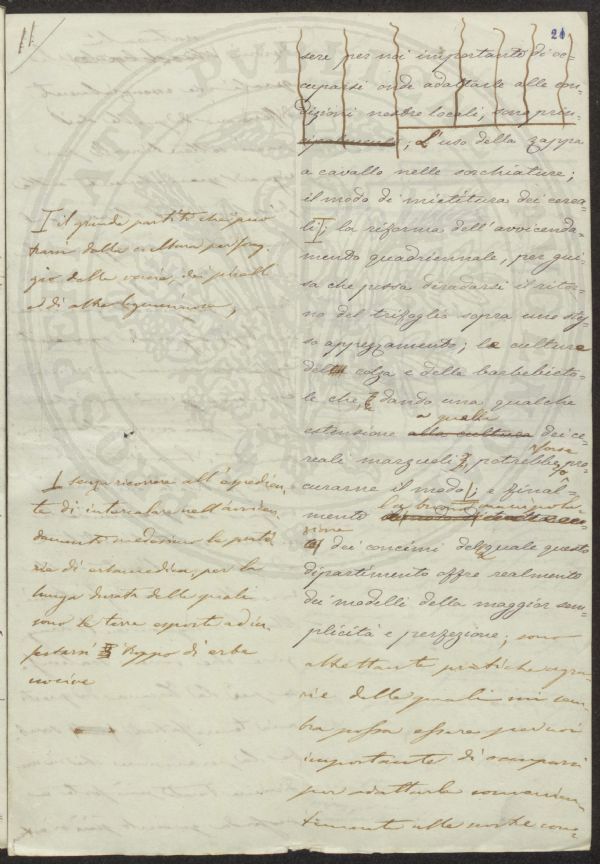 11
21
sere per noi importante di oc-
cuparsi onde adattarle alle con-
dizioni nostre locali, sono prin-
cipalmente; L'uso della zappa
a cavallo nelle sarchiature;
il modo di mietitura dei cerea-
li I; la riforma dell'avvicenda-
mento quadriennale, per gui-
sa che possa diradarsi il ritor-
no del trifoglio sopra uno stes-
so appezzamento; la cultura
della colza e della barbabieto-
le che, dando una qualche
a quella
estensione alla cultura dei ce-
forse
reali marzuoli, potrebbe pro-
curarne il modo I; e final-
la buona
mento
dei concimi del quale questo
dipartimento offre realmente
dei modelli della maggior sem-
plicità e perfezione; sono
altrettante pratiche agra-
rie delle quali mi sem-
bra possa essere per noi
importante di occuparsi
per adattarle convenien-
temente alle nostre con-
I il grande partito che può
trarsi dalla cultura per forag-
gio della veccia, dei piselli
ed di altre leguminose;
I senza ricorrere all'espedien-
te di intercalare nell'avvicen-
damento medesimo le prate-
ria di erba medica, per la
lunga durata delle quali
sono le terre esposte ad in-
festarsi troppo di erbe
nocive